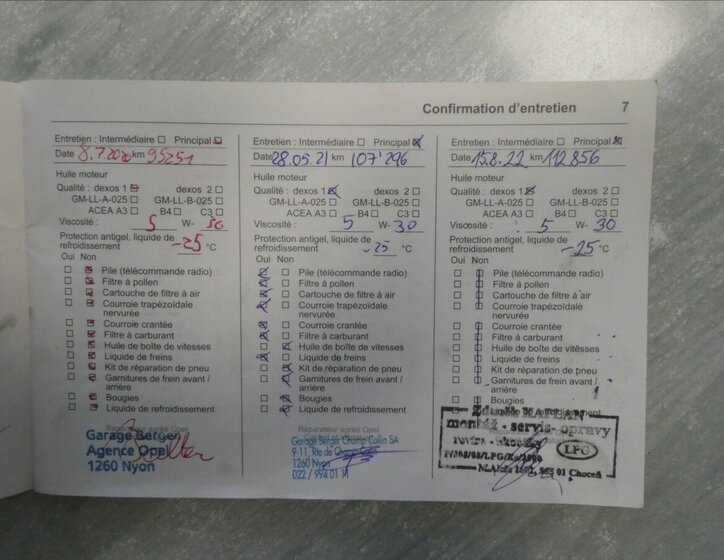 Confirmation d'entretien 7
Entretien : Intermédiaire ☐ Principal ☒
Date 8.7.2020 km 95251
Huile moteur
Qualité : dexos 1 ☒ dexos 2 ☐
GM-LL-A-025 ☐ GM-LL-B-025 ☐
ACEA A3 ☐ B4 ☐ C3 ☐
Viscosité : 5 W- 30
Protection antigel, liquide de
refroidissement -25 °C
Oui Non
☐ ☒ Pile (télécommande radio)
☐ ☒ Filtre à pollen
☐ ☒ Cartouche de filtre à air
☐ ☒ Courroie trapézoïdale
nervurée
☐ ☒ Courroie crantée
☐ ☒ Filtre à carburant
☐ ☒ Huile de boîte de vitesses
☐ ☒ Liquide de freins
☐ ☒ Kit de réparation de pneu
☐ ☒ Garnitures de frein avant /
arrière
☐ ☒ Bougies
☐ ☒ Liquide de refroidissement
Réparateur agréé Opel
Garage Berger
Agence Opel
1260 Nyon
Entretien : Intermédiaire ☐ Principal ☒
Date 28.05.21 km 107'296
Huile moteur
Qualité : dexos 1 ☒ dexos 2 ☐
GM-LL-A-025 ☐ GM-LL-B-025 ☐
ACEA A3 ☐ B4 ☐ C3 ☐
Viscosité : 5 W- 30
Protection antigel, liquide de
refroidissement -25 °C
Oui Non
☒ ☐ Pile (télécommande radio)
☒ ☐ Filtre à pollen
☒ ☐ Cartouche de filtre à air
☒ ☐ Courroie trapézoïdale
nervurée
☒ ☐ Courroie crantée
☒ ☐ Filtre à carburant
☒ ☒ Huile de boîte de vitesses
☒ ☐ Liquide de freins
☐ ☒ Kit de réparation de pneu
☐ ☒ Garnitures de frein avant /
arrière
☐ ☒ Bougies
☐ ☒ Liquide de refroidissement
Réparateur agréé Opel
Garage Berger Champ Collin SA
9-11, Rte de Champ Colin
1260 Nyon
022 / 994 01 11
Entretien : Intermédiaire ☐ Principal ☒
Date 15.8.22 km 112856
Huile moteur
Qualité : dexos 1 ☒ dexos 2 ☐
GM-LL-A-025 ☐ GM-LL-B-025 ☐
ACEA A3 ☐ B4 ☐ C3 ☐
Viscosité : 5 W- 30
Protection antigel, liquide de
refroidissement -25 °C
Oui Non
☐ ☐ Pile (télécommande radio)
☐ ☐ Filtre à pollen
☐ ☐ Cartouche de filtre à air
☐ ☐ Courroie trapézoïdale
nervurée
☐ ☐ Courroie crantée
☐ ☐ Filtre à carburant
☐ ☐ Huile de boîte de vitesses
☐ ☐ Liquide de freins
☐ ☐ Kit de réparation de pneu
☐ ☐ Garnitures de frein avant /
arrière
☐ ☐ Bougies
☐ ☐ Liquide de refroidissement
KAPLAN
montáž - servis - opravy
LPG
01 Choceň